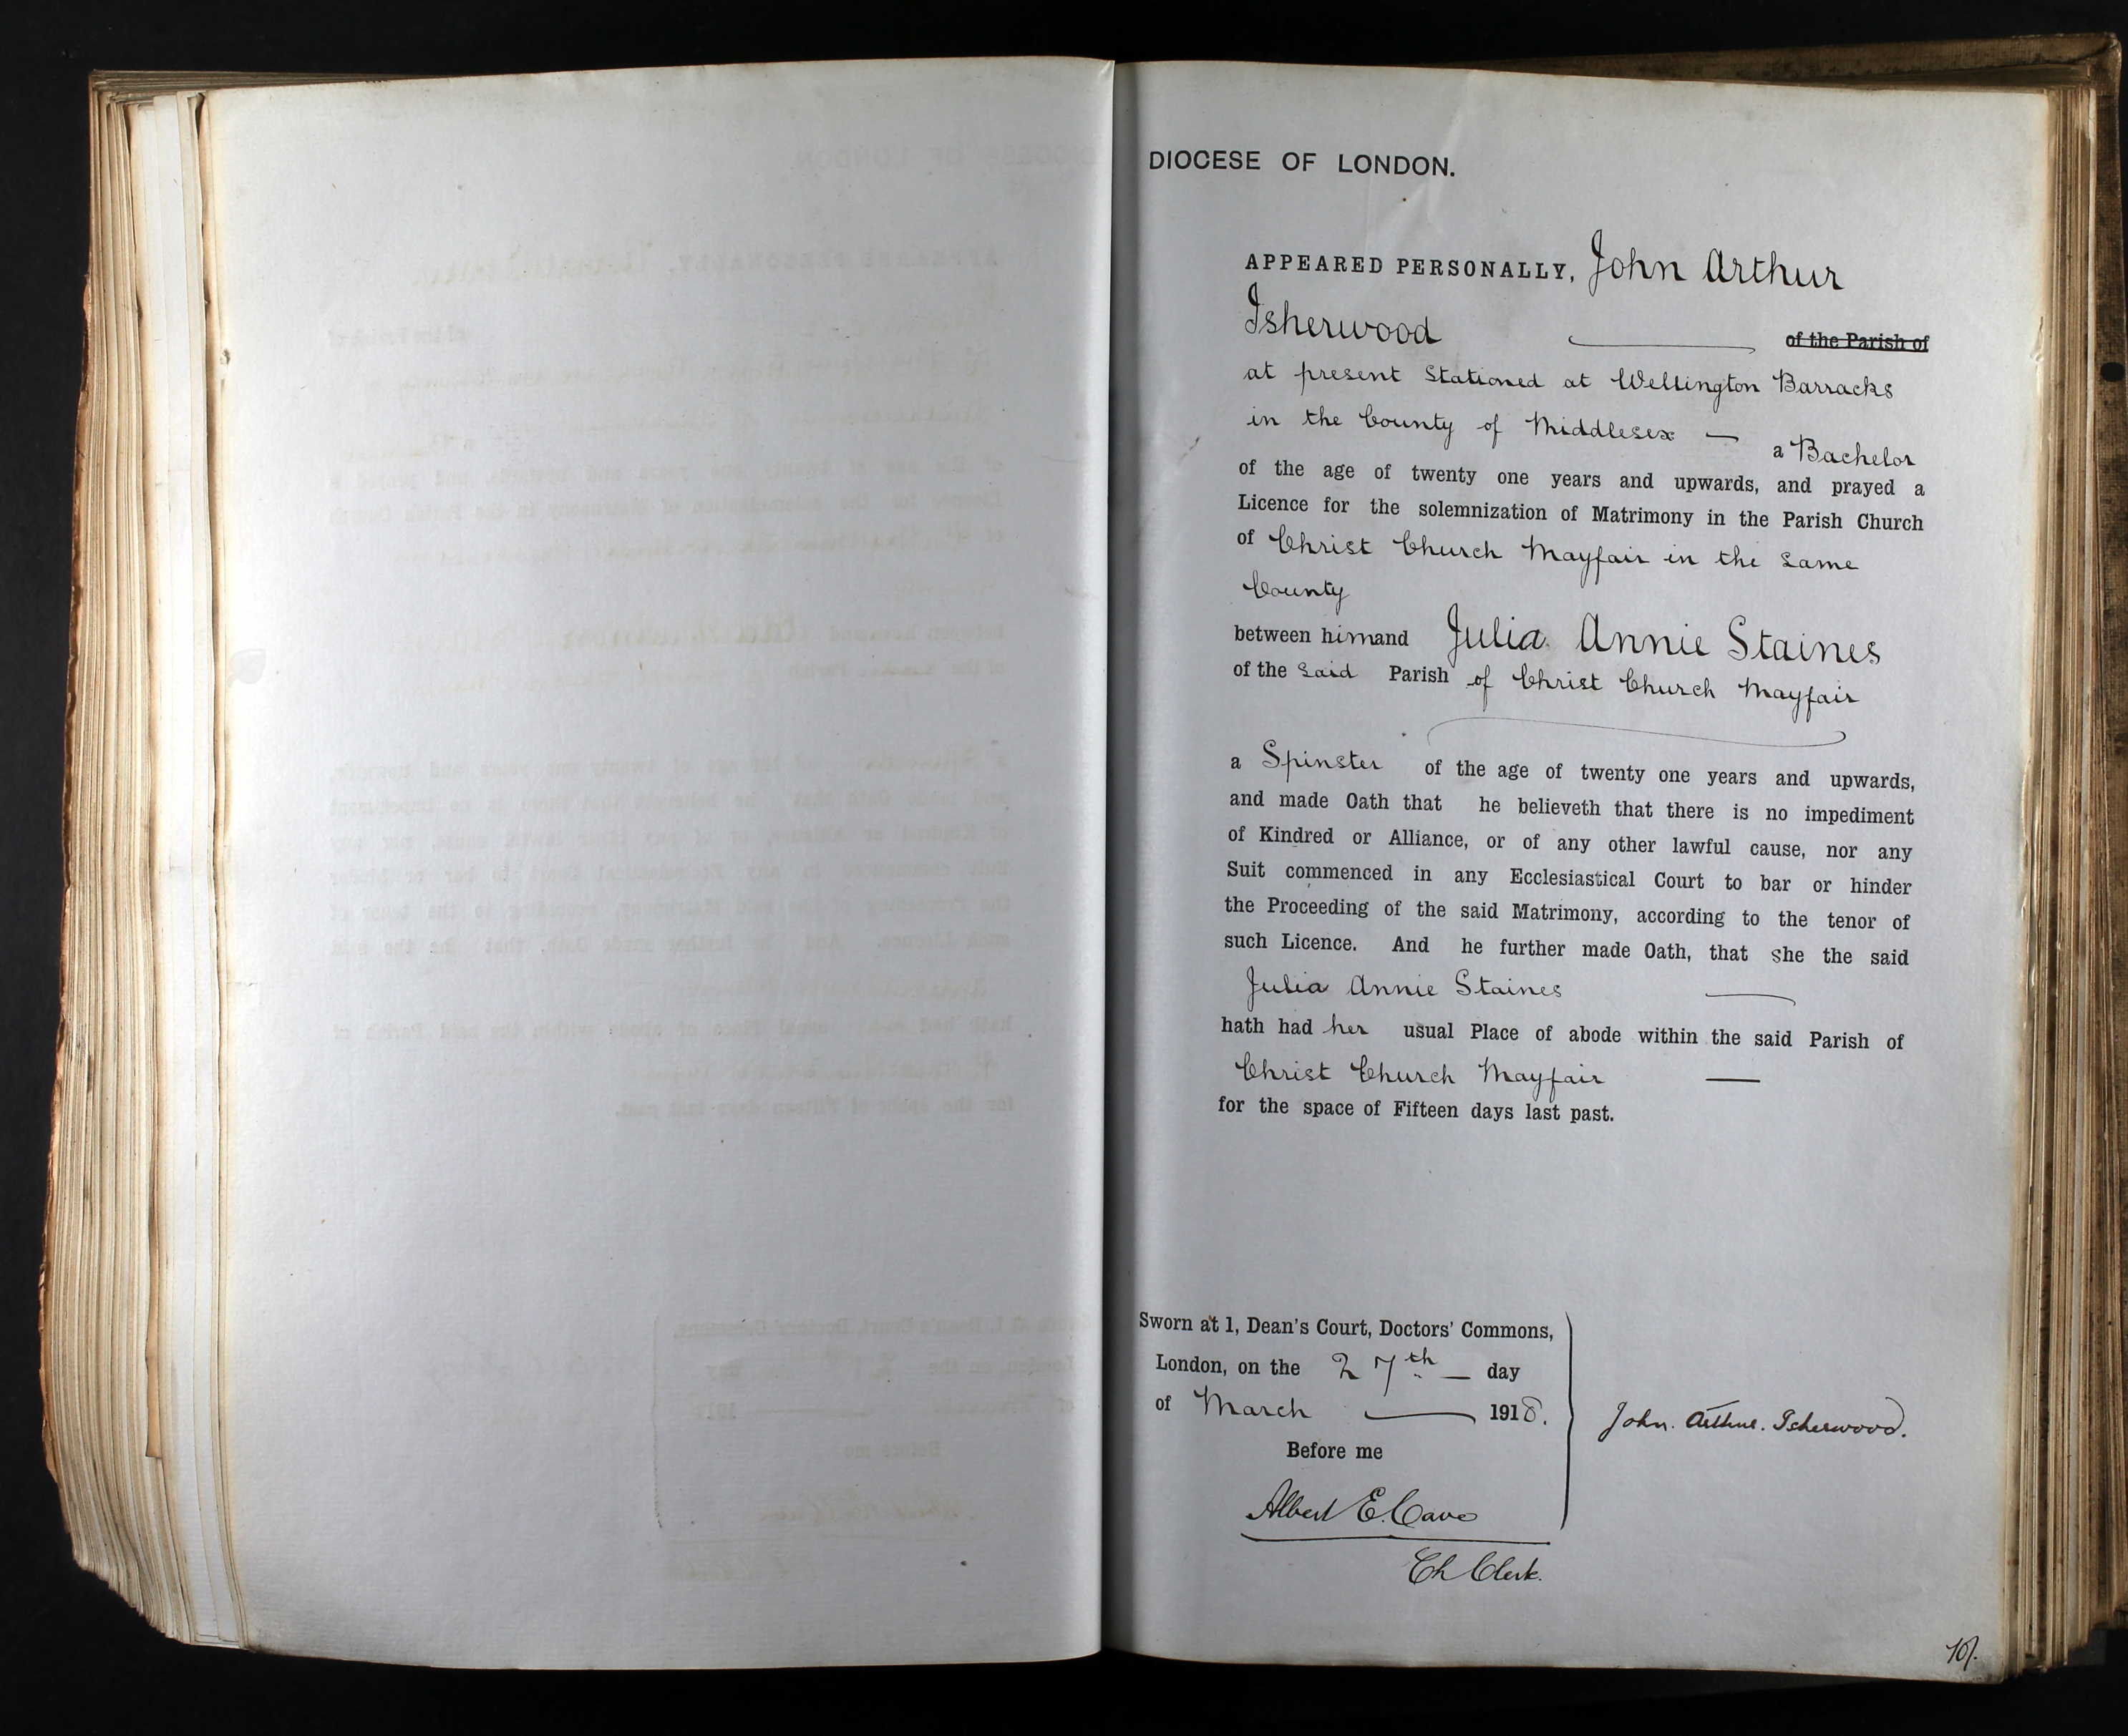 DIOCESE OF LONDON.
APPEARED PERSONALLY, John Arthur
Isherwood of the Parish of
at present Stationed at Wellington Barracks
in the County of Middlesex — a Bachelor
of the age of twenty one years and upwards, and prayed a
Licence for the solemnization of Matrimony in the Parish Church
of Christ Church Mayfair in the same
County
between him and Julia Annie Staines
of the said Parish of Christ Church Mayfair
a Spinster of the age of twenty one years and upwards,
and made Oath that he believeth that there is no impediment
of Kindred or Alliance, or of any other lawful cause, nor any
Suit commenced in any Ecclesiastical Court to bar or hinder
the Proceeding of the said Matrimony, according to the tenor of
such Licence. And he further made Oath, that she the said
Julia Annie Staines —
hath had her usual Place of abode within the said Parish of
Christ Church Mayfair —
for the space of Fifteen days last past.
Sworn at 1, Dean's Court, Doctors' Commons,
London, on the 27th — day
of March — 1918.
Before me
John. Arthur. Isherwood.
Albert E. Cave
Ch Clerk.